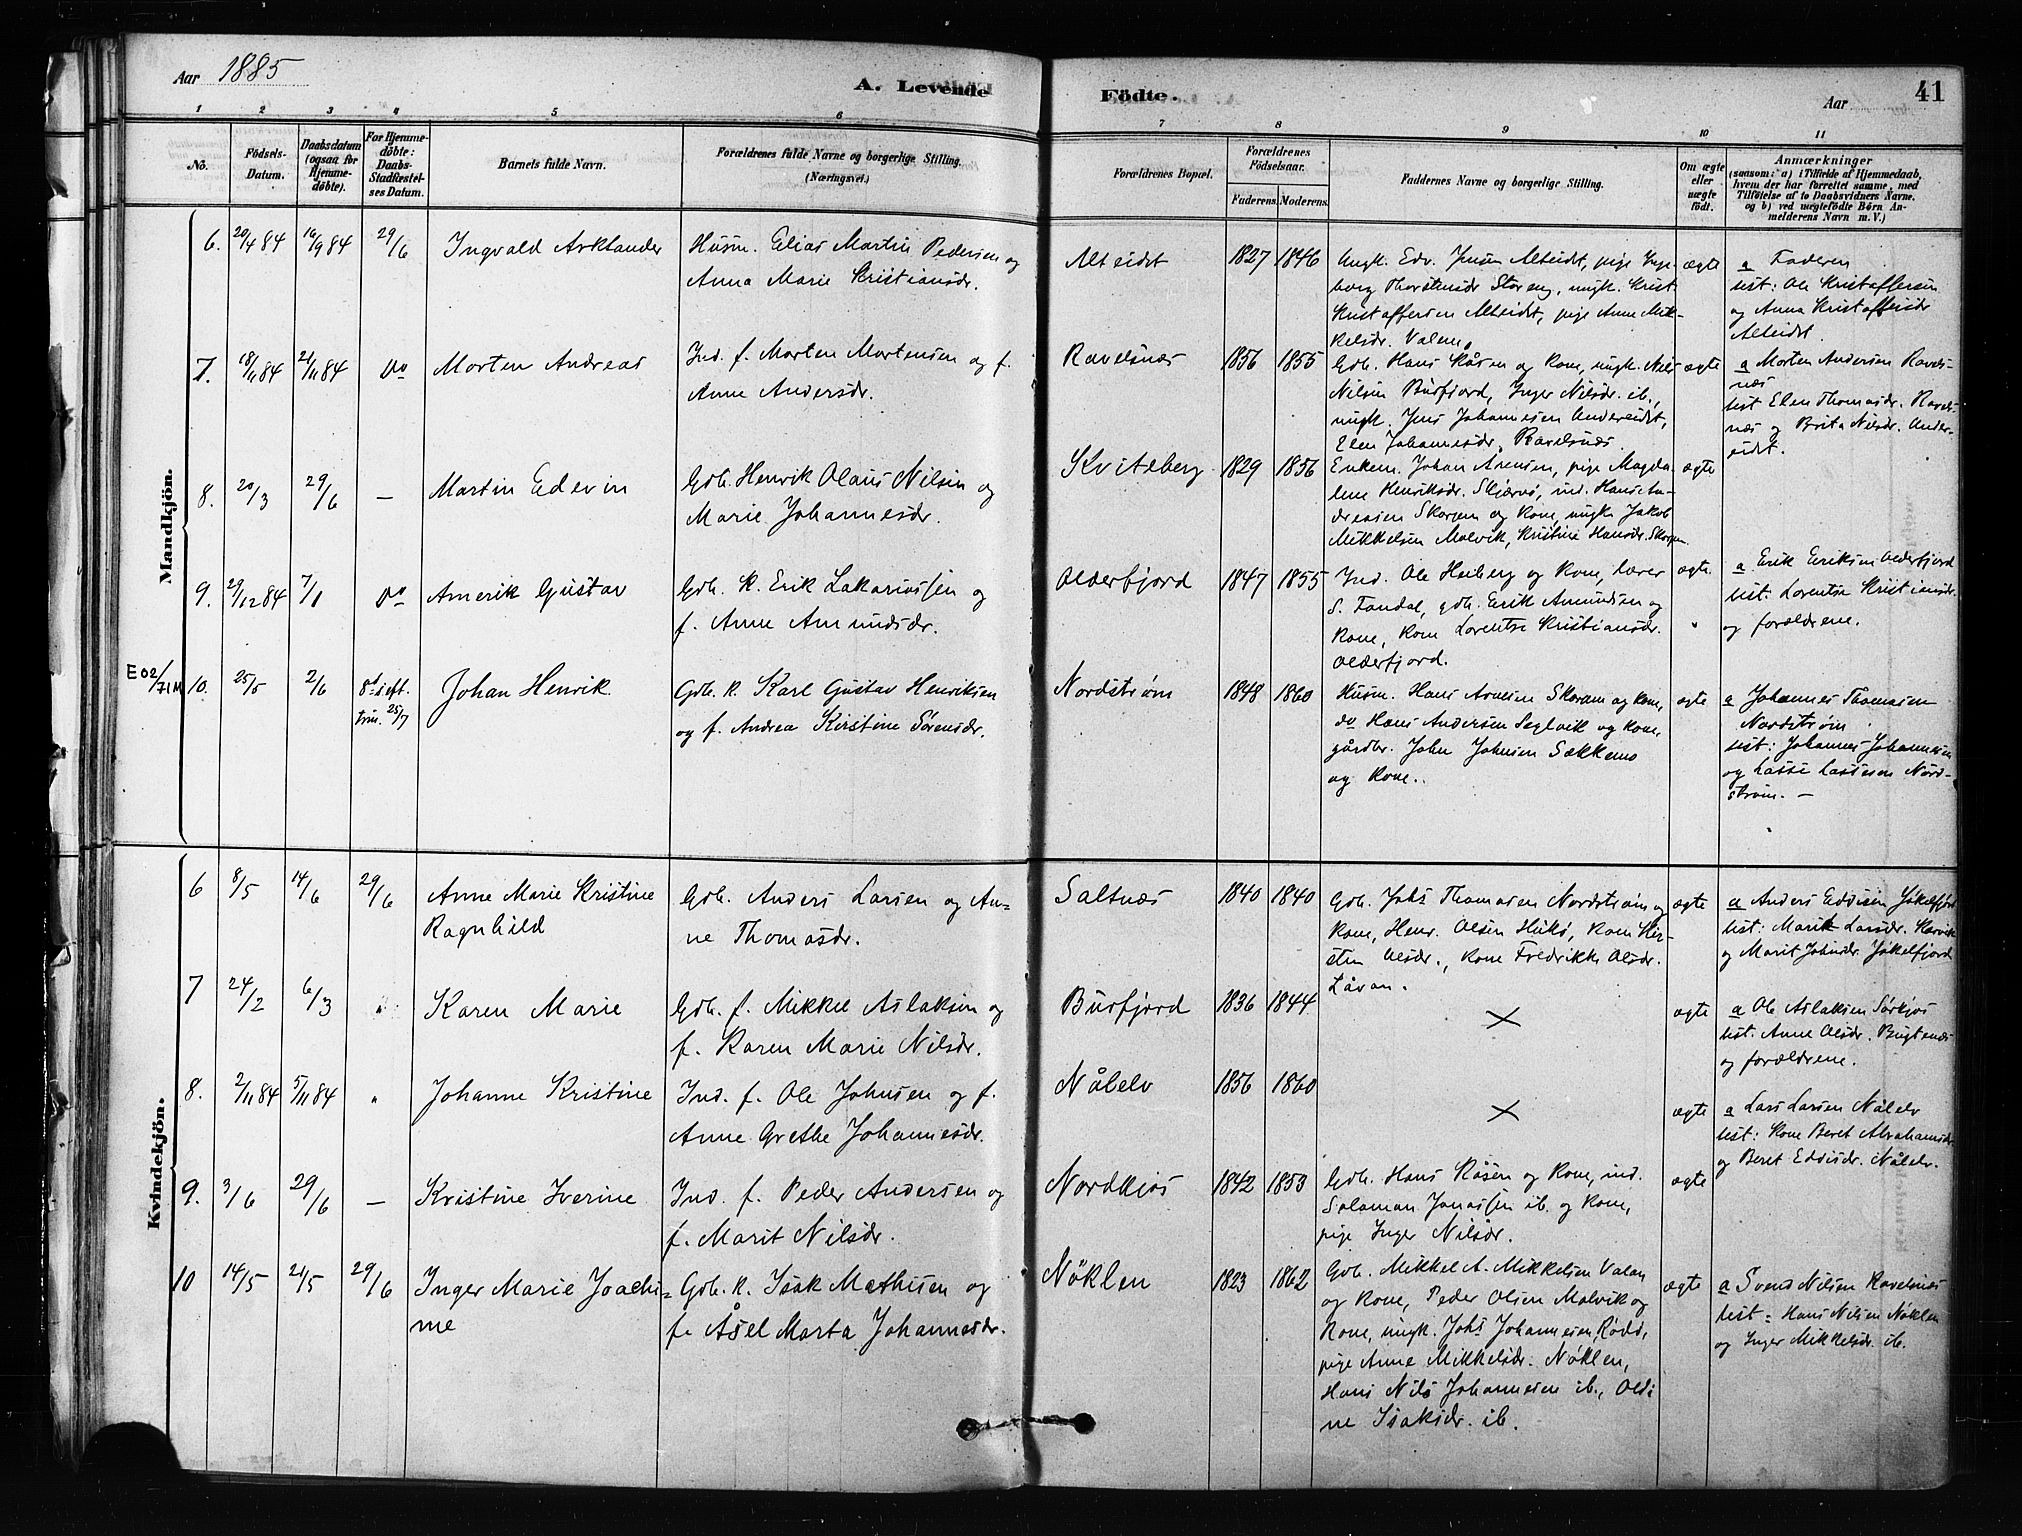 Aar 1885
A. Levende Födte.
Aar
41
1 2 3 4 5 6 7 8 9 10 11
No.
Födsels-Datum.
Daabsdatum (ogsaa for Hjemmedöbte).
For Hjemmedöbte: Daabs-Stadfæstelses Datum.
Barnets fulde Navn.
Forældrenes fulde Navne og borgerlige Stilling. (Næringsvei.)
Forældrenes Bopæl.
Forældrenes Födselsaar.
Faderens. Moderens.
Faddernes Navne og borgerlige Stilling.
Om ægte eller uægte födt.
Anmærkninger
(saasom: a) i Tilfælde af Hjemmedaab,
hvem der har forrettet samme, med
Tilföielse af to Daabsvidners Navne.
og b) ved uægtefödte Börn An-
melderens Navn m. V.)
Mandkjön.
6. 20/4 84 16/9 84 29/6 Ingvald Arklander
Husm. Elias Martin Pedersen og
Anna Marie Kristiansdr.
Alteidet 1827 1846
Ungk. Edv. Jensen Alteidet, pige Inge-
borg Thorstensdr Storeng, ungk. Krist
Kristoffersen Alteidet, pige Anne Mik-
kelsdr. Valen.
ægte
a Faderen
test: Ole Kristoffersen
og Anna Kristoffersdr
Alteidet.
7. 18/11 84 21/11 84 Do Morten Andreas
Ind. f. Morten Mortensen og f.
Anne Andersdr.
Ravelsnæs 1856 1855
Gdb. Hans Råsen og kone, ungk. Nils
Nilsen Burfjord, Inger Nilsdr. ib.,
ungk. Jens Johannesen Undereidet,
Elen Johannesdr. Ravelsnæs.
ægte
a Morten Andersen Ravels-
næs
test Elen Thomasdr. Ravels-
næs og Brita Nilsdr. Under-
eidet.
8. 20/3 29/6 — Martin Edevin
Gdb. Henrik Olaus Nilsen og
Marie Johannesdr.
Kviteberg 1829 1856
Enkem. Johan Arensen, pige Magda-
lene Henriksdr. Skjærvø, ind. Hans An-
dreasen Skorpen og kone, ungk. Jakob
Mikkelsen Malvik, Kristine Hansdr. Skorpen.
ægte
9. 29/12 84 7/1 Do Amerik Gustav
Gdb. k. Erik Zakariassen og
f. Anne Amundsdr.
Olderfjord 1847 1855
Ind. Ole Heiberg og kone, lærer
S. Tandal, gdb. Erik Amundsen og
kone, kone Lorentse Kristiansdr.
Olderfjord.
ægte
a Erik Eriksen Olderfjord
test. Lorentse Kristiansdr.
og forældrene.
E 02/71 M
10. 25/5 2/6 8d. s. eft. trin. 25/7 Johan Henrik
Gdb. k. Karl Gustav Henriksen
og f. Andrea Kirstine Sörensdr.
Nordstrøm 1848 1860
Husm. Hans Arnesen Skorpen og kone,
do Hans Andersen Seglvik og kone,
gårdbr. John Johnsen Sækkemo
og kone.
ægte
a Johannes Thomasen
Nordstrøm
test: Johannes Johannesen
og Lasse Lassesen Nord-
strøm. —
Kvindekjön.
6 8/5 14/6 29/6 Anne Marie Kristine
Ragnhild
Gdb. Anders Larsen og An=
ne Thomasdr.
Saltnæs 1840 1840
Gdb. Johs Thomasen Nordstrøm og
kone, Henr. Olsen Hukö, kone Kir-
sten Olsdr., kone Fredrikke Olsdr.
Låvan.
ægte
a Anders Eddisen Jøkelfjord
test: Marit Larsdr. Karvik
og Marit Johnsdr. Jøkelfjord
7 24/2 6/3 " Karen Marie
Gdb. f. Mikkel Aslaksen og
f. Karen Marie Nilsdr.
Burfjord 1836 1844
×
ægte
a Ole Aslaksen Sørkjos
test. Anne Olsdr. Bugtenæs
og forældrene.
8. 2/11 84 5/11 84 " Johanne Kristine
Ind. f. Ole Johnsen og f.
Anne Grethe Johannesdr.
Nålelv 1856 1860
×
ægte
a Lars Larsen Nålelv
test: kone Beret Abrahamsdr
og Beret Eddisdr. Nålelv.
9. 3/6 29/6 — Kristine Iverine
Ind. f. Peder Andersen og
f. Marit Nilsdr.
Nordkjos 1842 1853
Gdb. Hans Råsen og kone, ind.
Salamon Jonassen ib. og kone,
pige Inger Nilsdr.
ægte
10 14/5 21/5 29/6 Inger Marie Joachi=
me
Gdb. k. Isak Mathisen og
f. Åsel Marta Johannesdr.
Nøklen 1823 1862
Gdb. Mikkel A. Mikkelsen Valan
og kone, Peder Olsen Malvik og
kone, ungk. Johs Johannesen, Rødø,
pige Anne Mikkelsdr. Nøklen,
Hans Nils Johannesen ib., Oldi
ne Isaksdr. ib.
ægte
a Svend Nilsen Ravelsnæs
test: Hans Nilsen Nøklen
og Inger Mikkelsdr. ib.